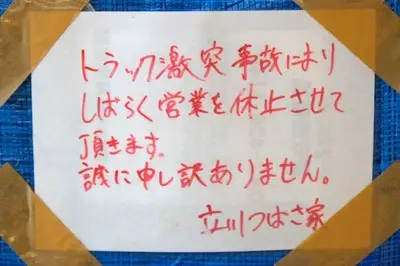 トラック激突事故により
しばらく営業を休止させて
頂きます。
誠に申し訳ありません。
立川つばさ家